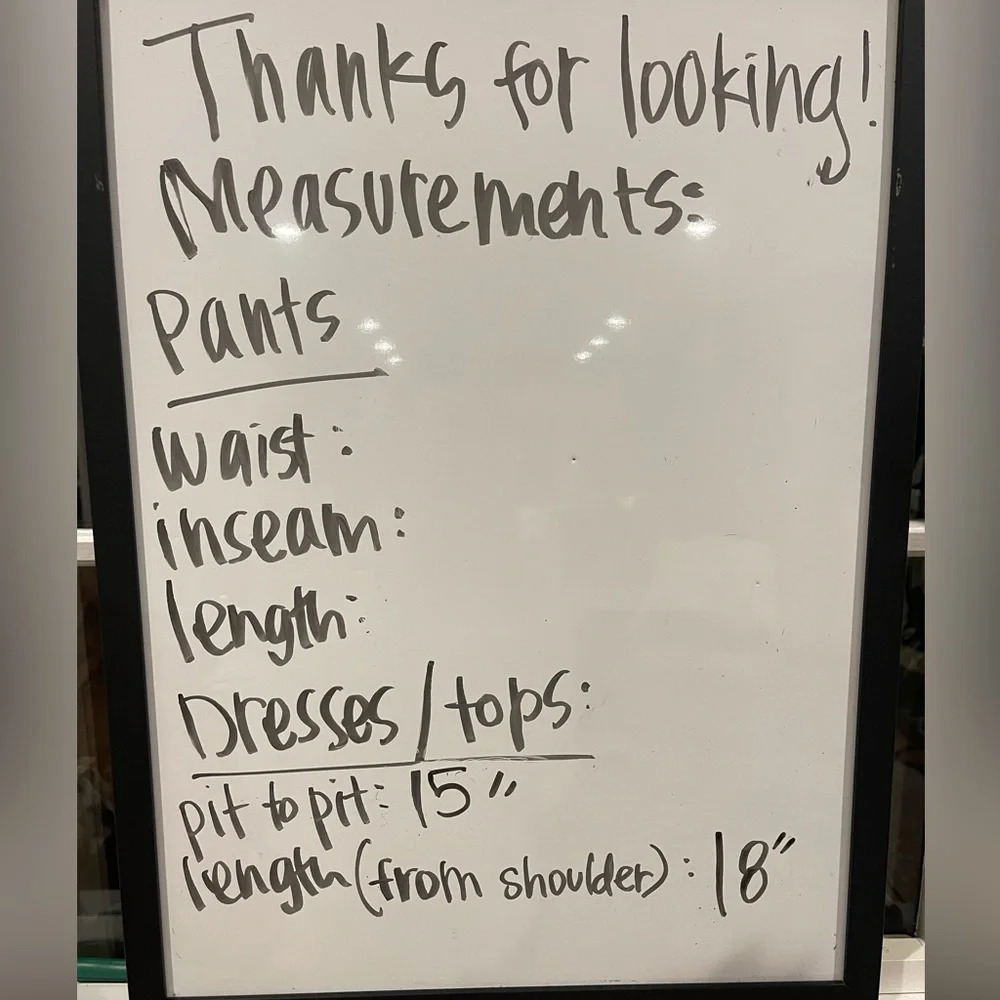 Thanks for looking!
Measurements:
Pants
waist:
inseam:
length:
Dresses/tops:
pit to pit: 15"
length (from shoulder): 18"